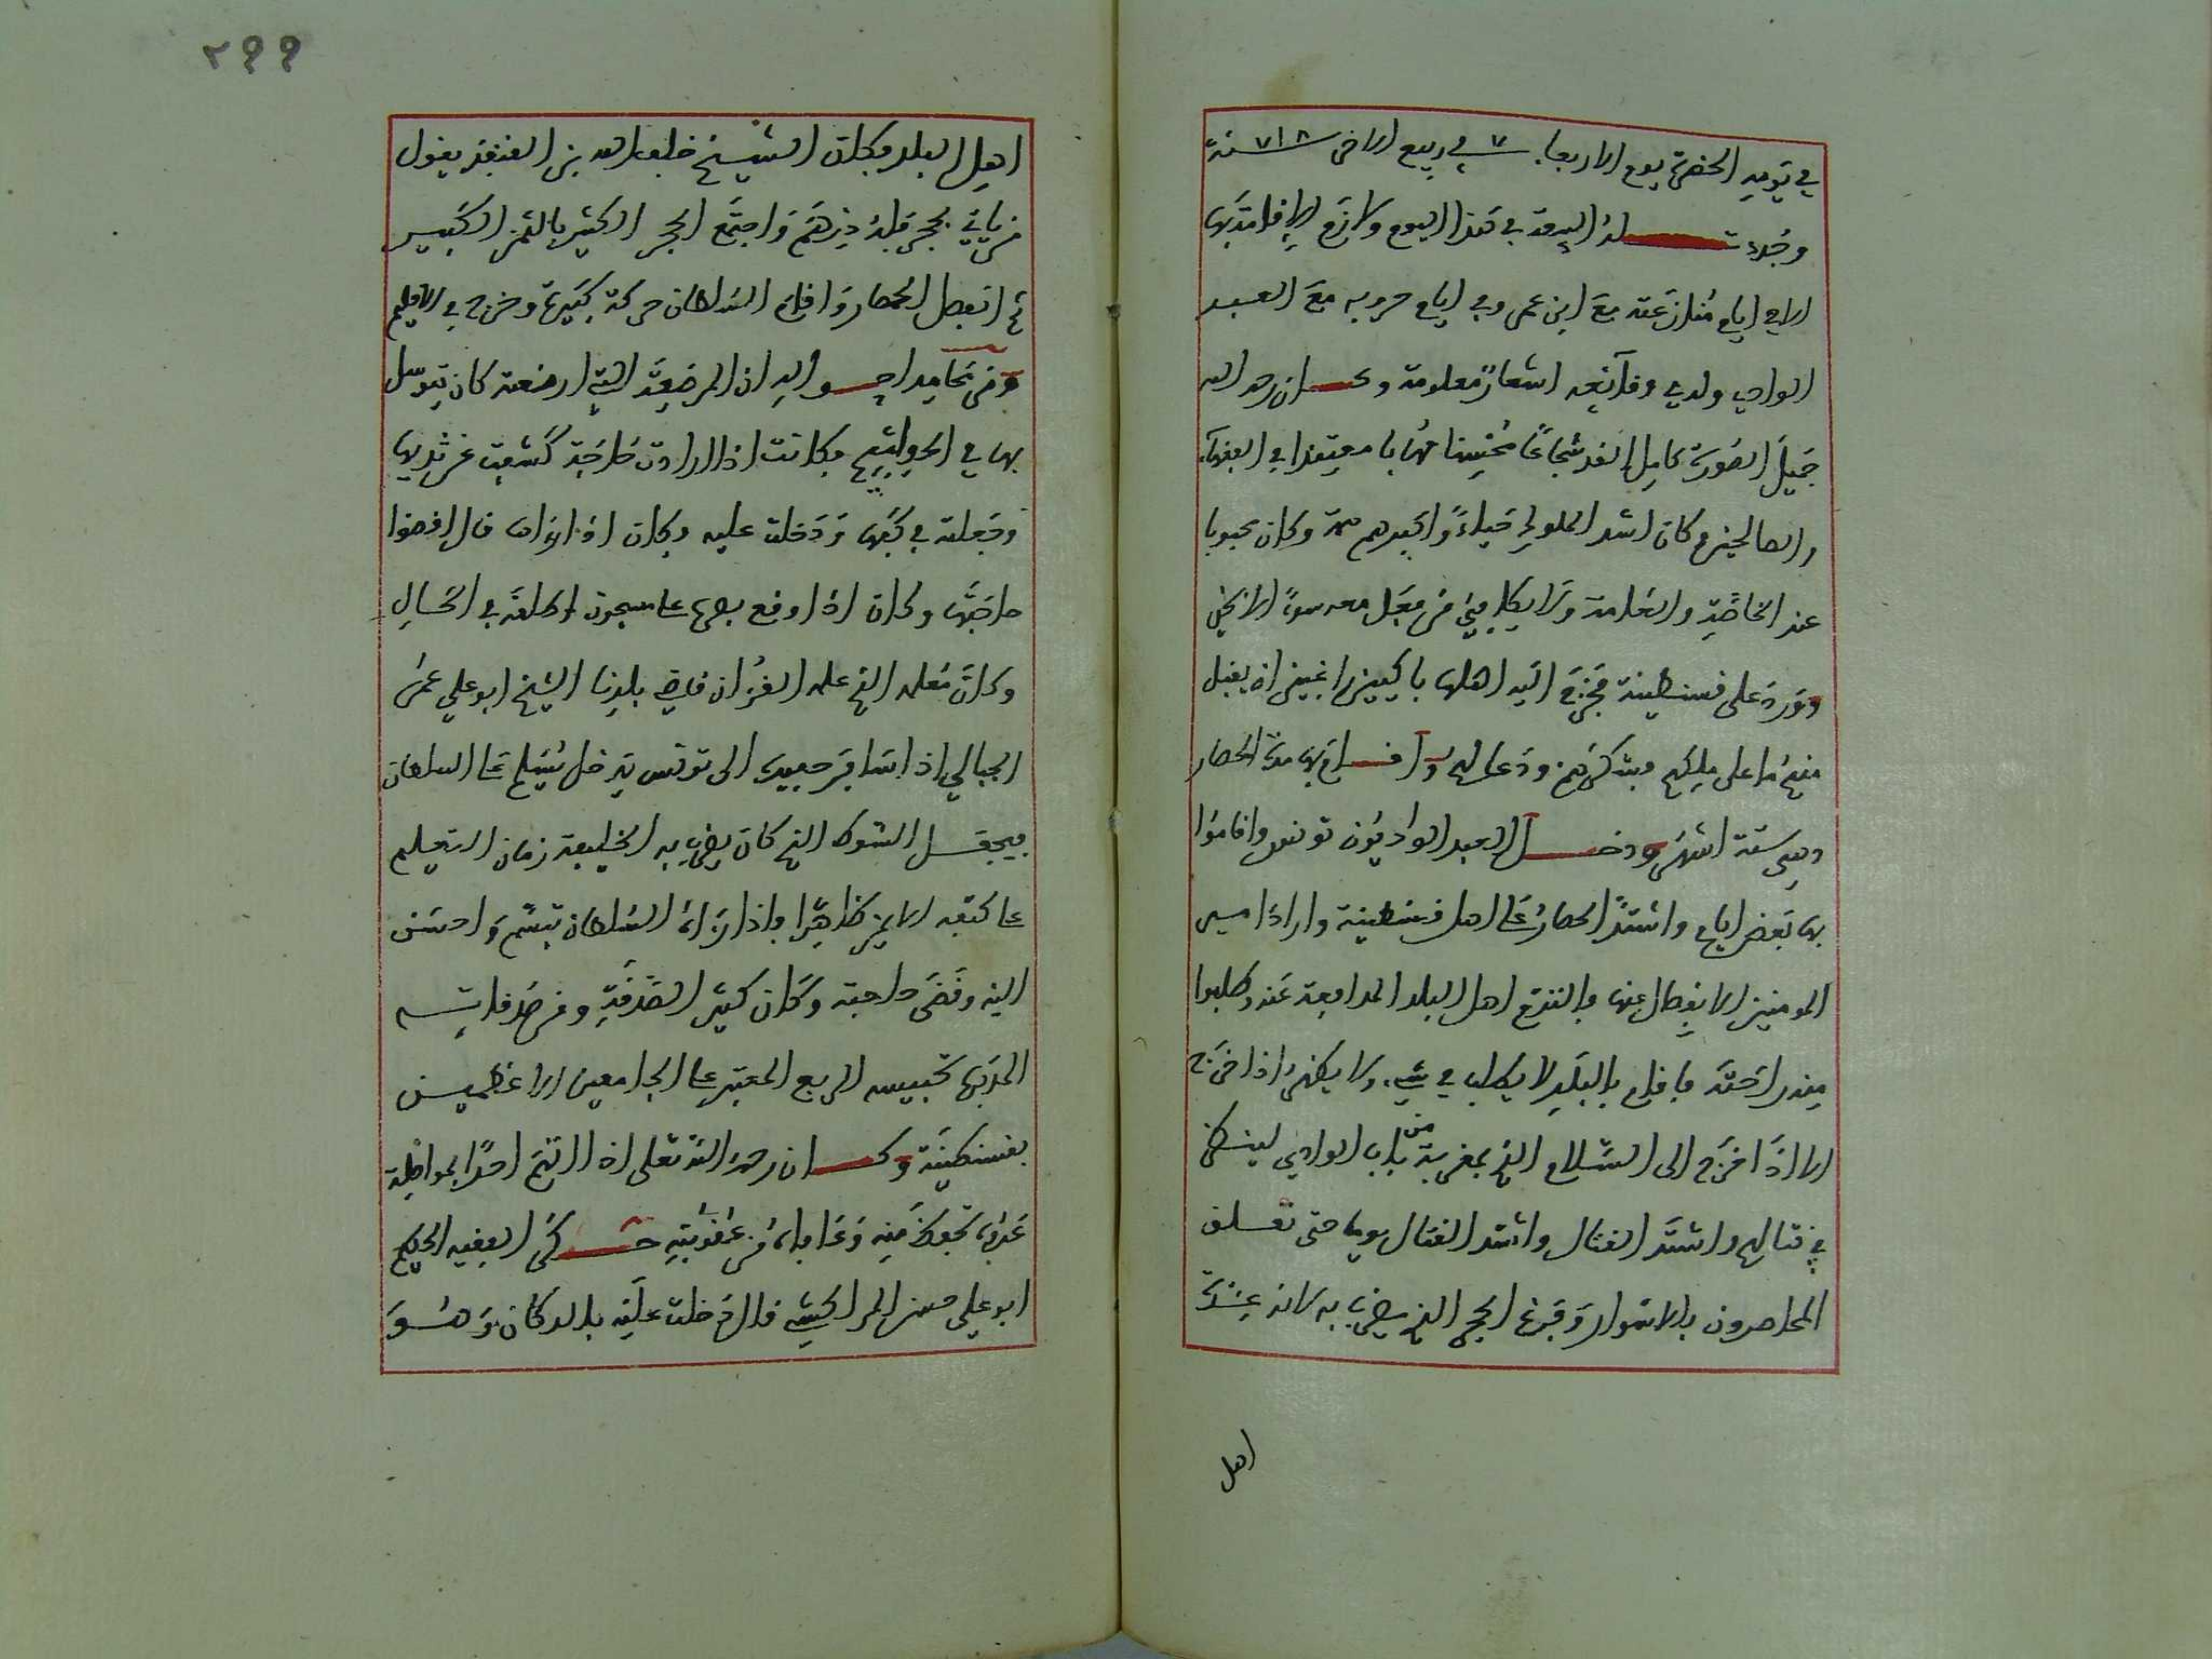 في يومه الحضرة يوم الاربعا ٧ في ربيع الاخر ٧١٨ سنة
وجددت له البيعة في هذا اليوم ولازم الاقامة بها
الا في ايام منازعته مع ابن عمر وفي ايام حروبه مع العبد
الوادي ولدي وقايعه اشعار معلومة وكان رحمه الله
جميل الصورة كامل القد شجاعا محسنا مهابا معتقدا في الفقهآء
والصالحين وكان اشد الملوك حياءً وابعدهم همة وكان محبوبا
عند الخاصة والعامة ولا يكافئ من فعل معه سوءً الا بخير
وورد على قسنطينة فخرج اليه اهلها باكين راغبين ان يقبل
منهم ما على ملكهم فشكرهم ودعا لهم واقام بها مدة الحصار
وهي ستة اشهر ودخل العبد الواديون تونس واقاموا
بها بعض ايام واشتد الحصار على اهل قسنطينة واراد امير
المومنين الانفصال عنها فالتزم اهل البلد المدافعة عنه وطلبوا
منه راحته فاقام بالبلد لا يطلب في شيء ولا يظهر اذا خرج
الا اذا خرج الى السلام الذي بمقربة من باب الوادي لينظر
في قتالهم واشتد القتال واشتد القتال يوما حتى تعلق
المحاصرون بالاسوار وفرغ الحجر الذي يضرب به لانه عنده
اهل
٢٩٩
اهل البلد فكان الشيخ خلف الله بن القنفذ يقول
من ياتي بحجر فله درهم واجتمع الحجر الكثير بالثمن الكبير
ثم انفصل الحصار واقام السلطان حركة كبيرة وخرج في الاقليم
ومن محامد احواله ان المرضعة التي ارضعته كان يتوسل
بها في الحوائج فكانت اذا ارادت حاجة كشفت عن ثديها
وجعلته في كفها ودخلت عليه فكان اذا راها قال اقضوا
حاجتها وكان اذا وقع بصره على مسجون اطلقه في الحال
وكان معلمه الذي علمه القرءان قاضي بلدنا الشيخ ابو علي عمر
الجبالي اذا سافر حفيده الى تونس يدخل يسلم على السلطان
فيجعل السوط الذي كان يضرب به الخليفة زمان التعليم
على كتفه الايمن ظاهرا فاذا رءاه السلطان تبسم واحسن
اليه وقضى حاجته وكان كثير الصدقة ومن صدقاته
المدبها تحبيسه الربع المعتبر على الجامعين الاعظمين
بقسنطينة وكان رحمه الله تعلى اذا اتهم احدا بمواطة
عدوه تحفظ منه وعافاه من عقوبته حكى الفقيه الحكيم
ابو علي حسن المراكشي قال دخلت عليه بالدكان وهو